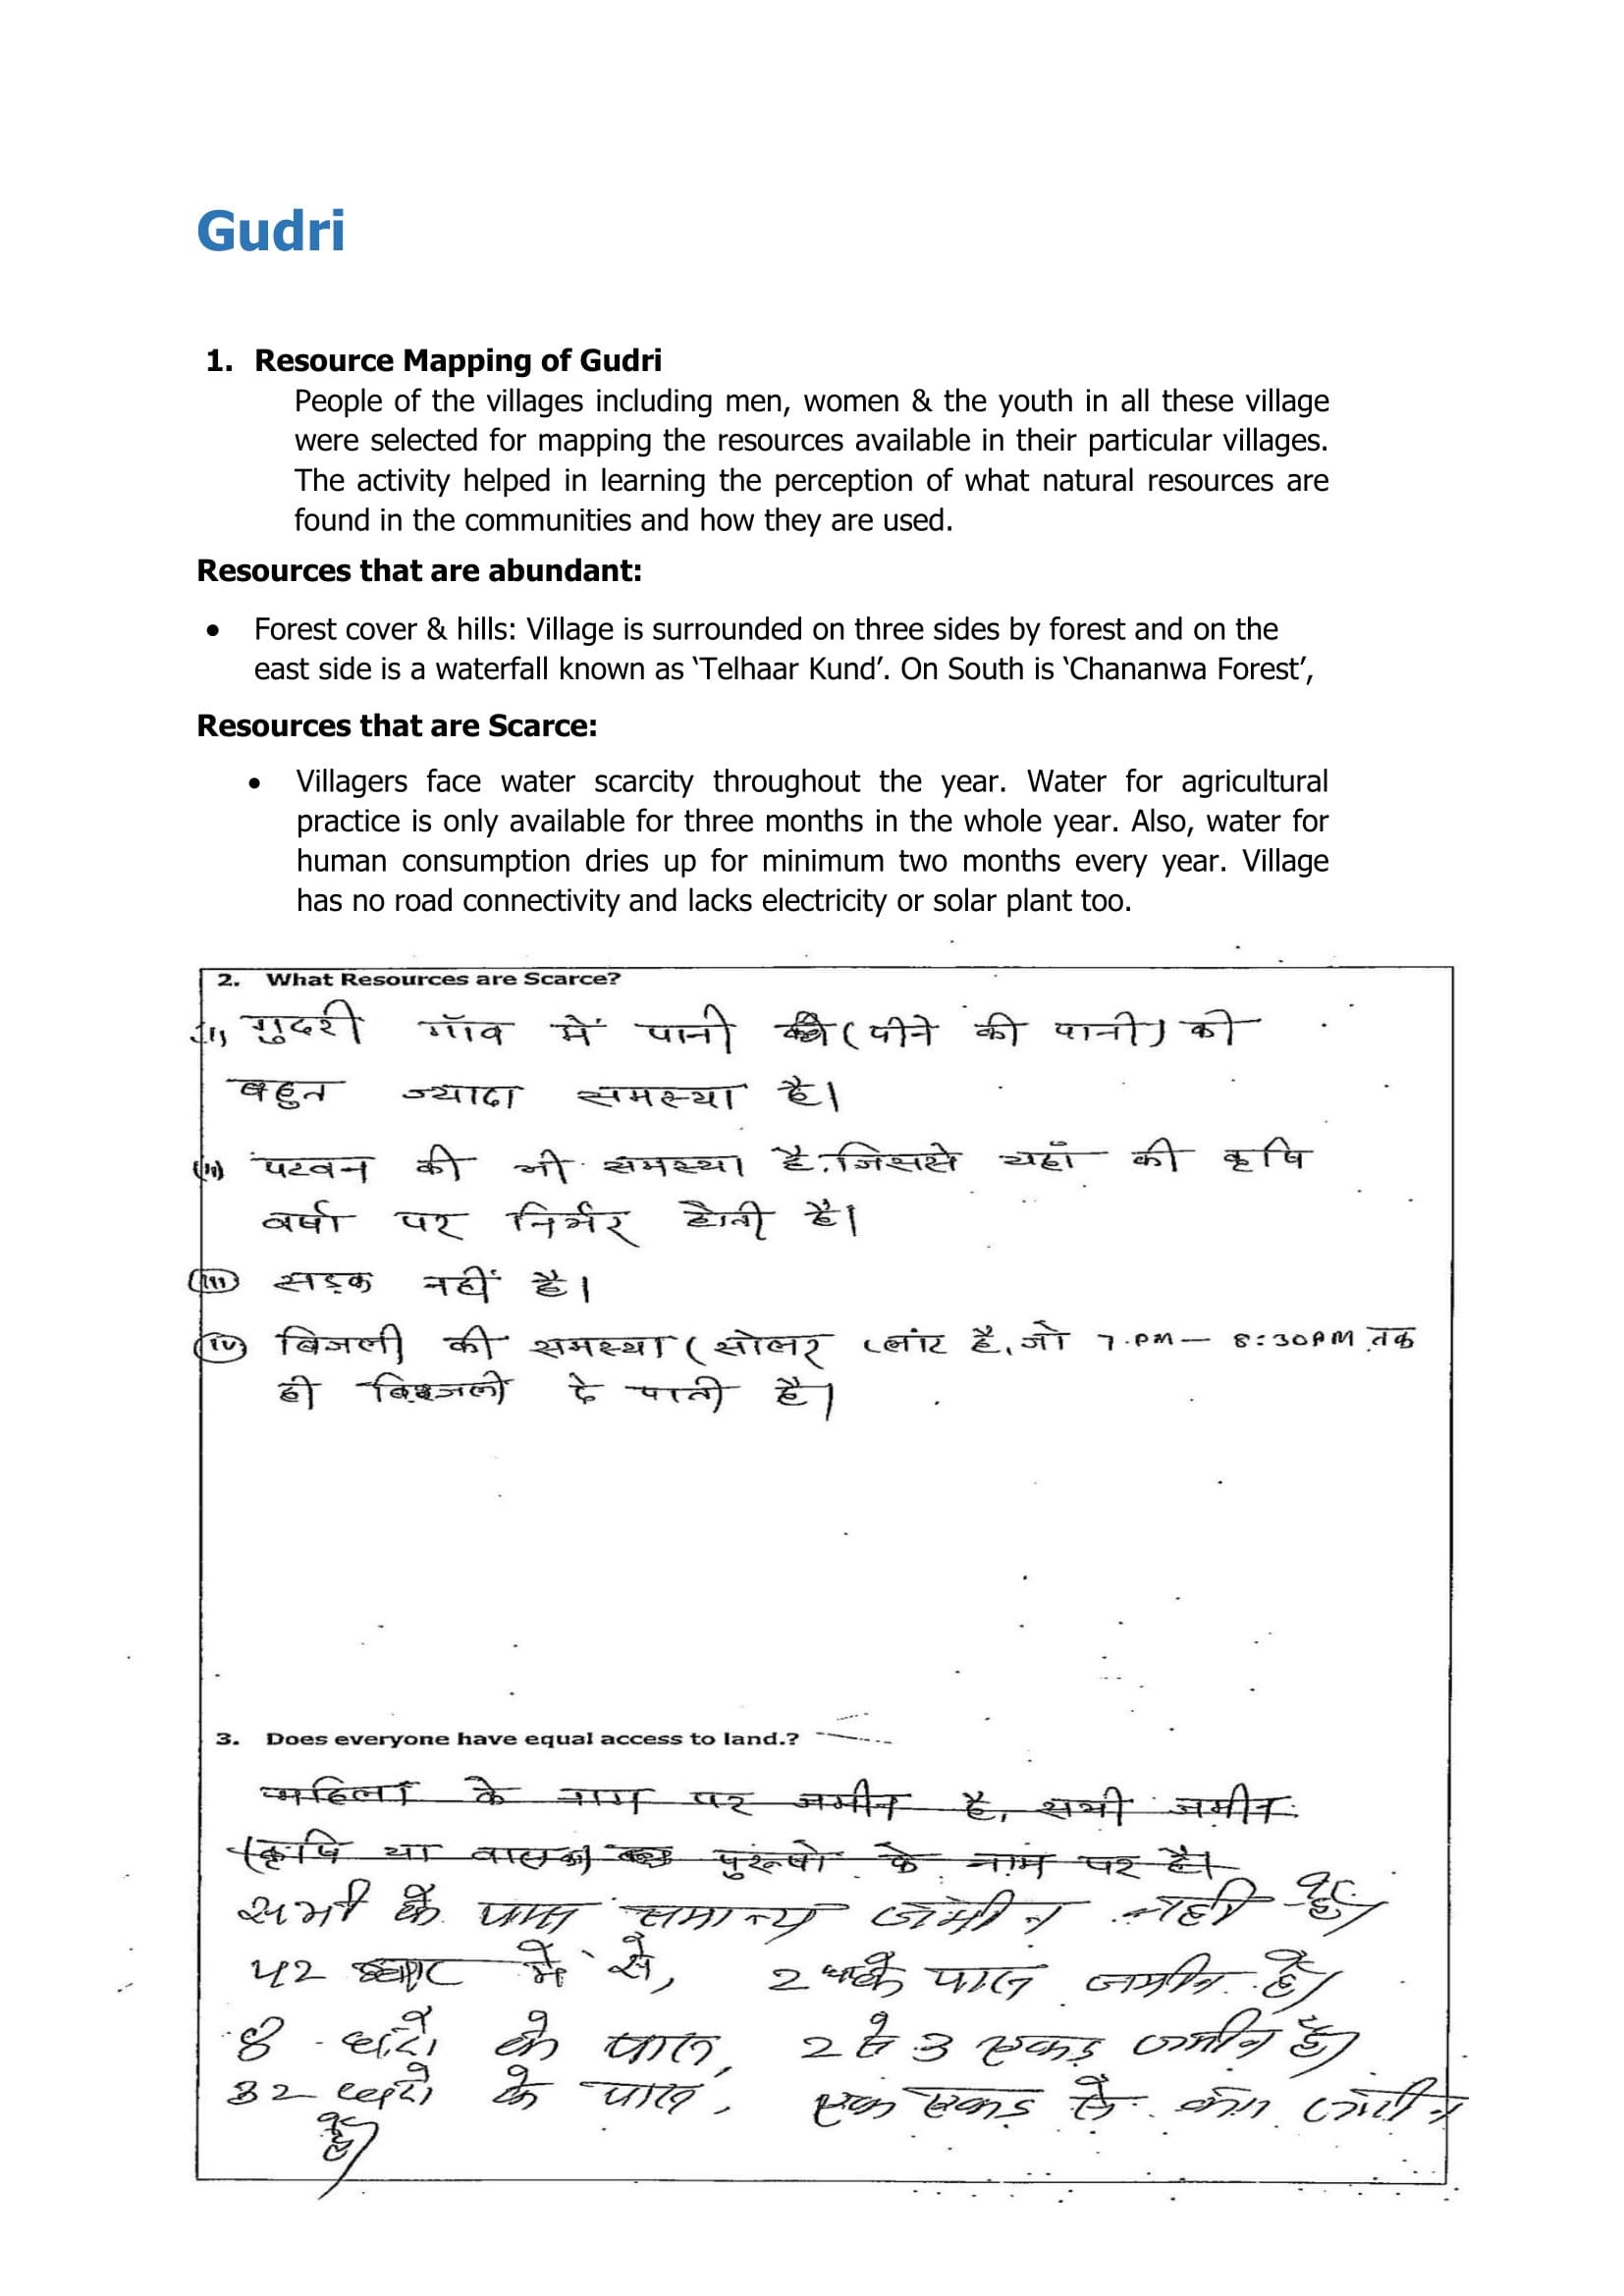 Gudri
1. Resource Mapping of Gudri
People of the villages including men, women & the youth in all these village
were selected for mapping the resources available in their particular villages.
The activity helped in learning the perception of what natural resources are
found in the communities and how they are used.
Resources that are abundant:
• Forest cover & hills: Village is surrounded on three sides by forest and on the
east side is a waterfall known as ‘Telhaar Kund’. On South is ‘Chananwa Forest’,
Resources that are Scarce:
• Villagers face water scarcity throughout the year. Water for agricultural
practice is only available for three months in the whole year. Also, water for
human consumption dries up for minimum two months every year. Village
has no road connectivity and lacks electricity or solar plant too.
2. What Resources are Scarce?
(i) गुदरी गाँव में पानी (पीने की पानी) की
बहुत ज्यादा समस्या है।
(ii) पटवन की भी समस्या है. जिससे यहाँ की कृषि
वर्षा पर निर्भर होती है।
(iii) सड़क नहीं है।
(iv) बिजली की समस्या (सोलर प्लांट है, जो 7.PM – 8:30PM तक
ही बिजली दे पाती है।
3. Does everyone have equal access to land.?
महिला के नाम पर जमीन है, सभी जमीन
(कृषि या पुरूषो के नाम पर है।
सभी के पास समान्य जमीन नही है।
42 में से, 2 के पास जमीन है।
8 घरो के पास, 2 से 3 एकड़ जमीन है।
32 घरो के पास, एक एकड़ से कम जमीन
है।